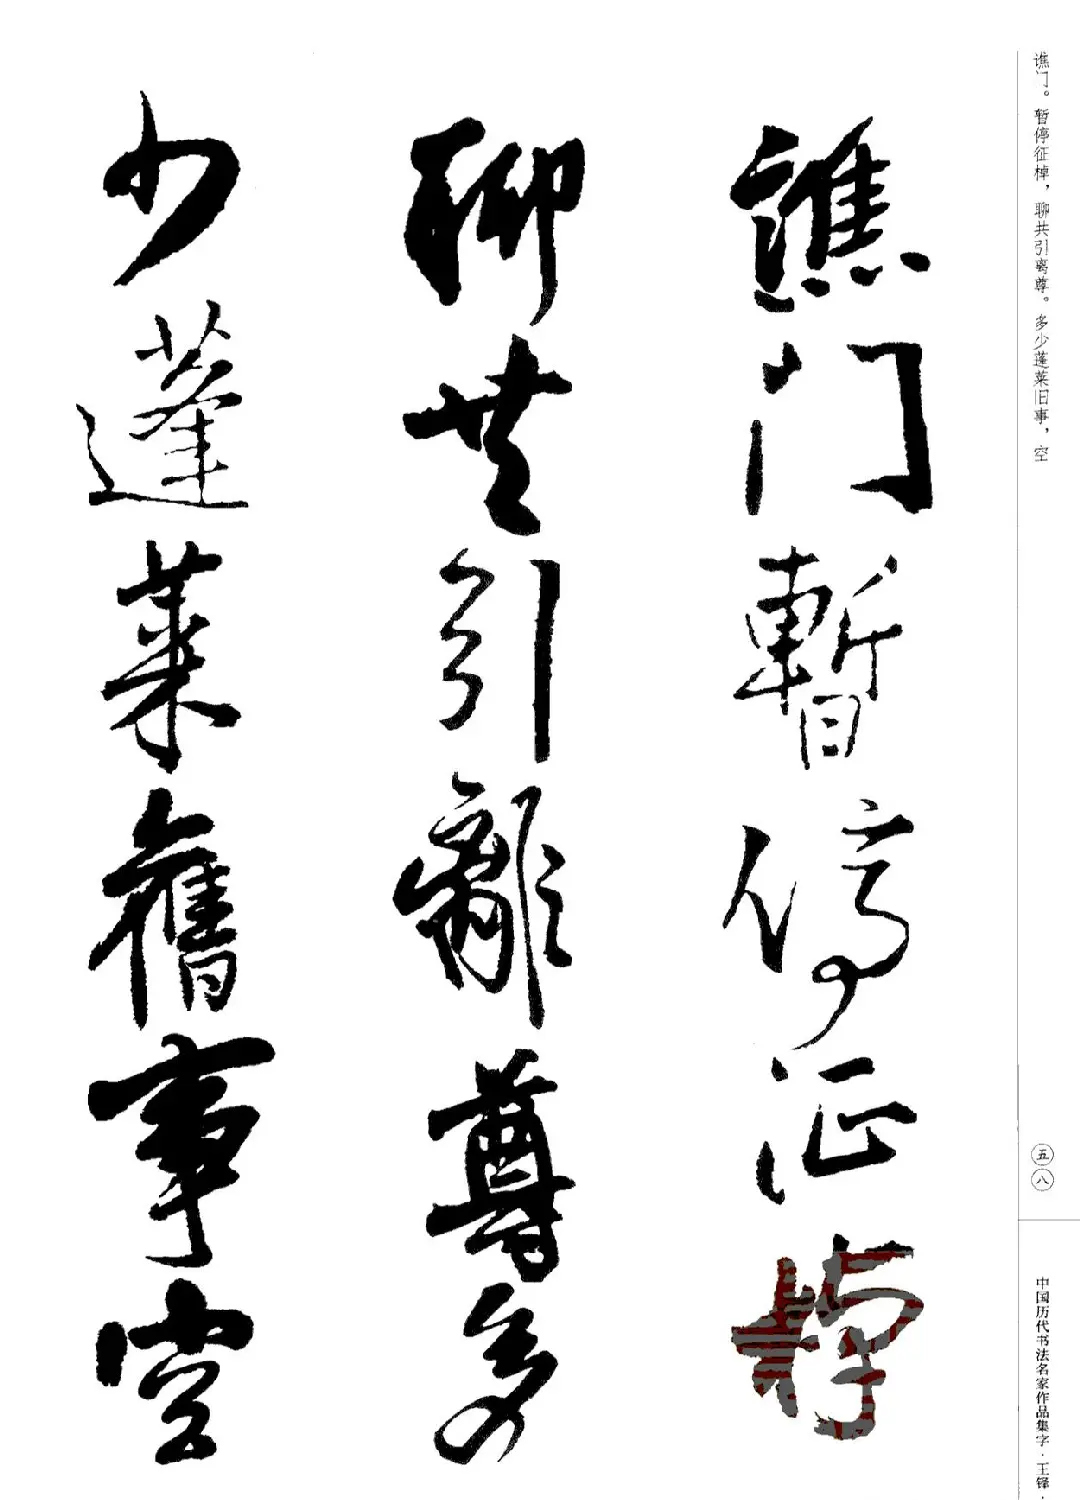 譙门暫停征棹
聊共引離尊多
少蓬萊舊事空
谯门。暂停征棹，聊共引离尊。多少蓬莱旧事，空
五八
中国历代书法名家作品集字·王铎·